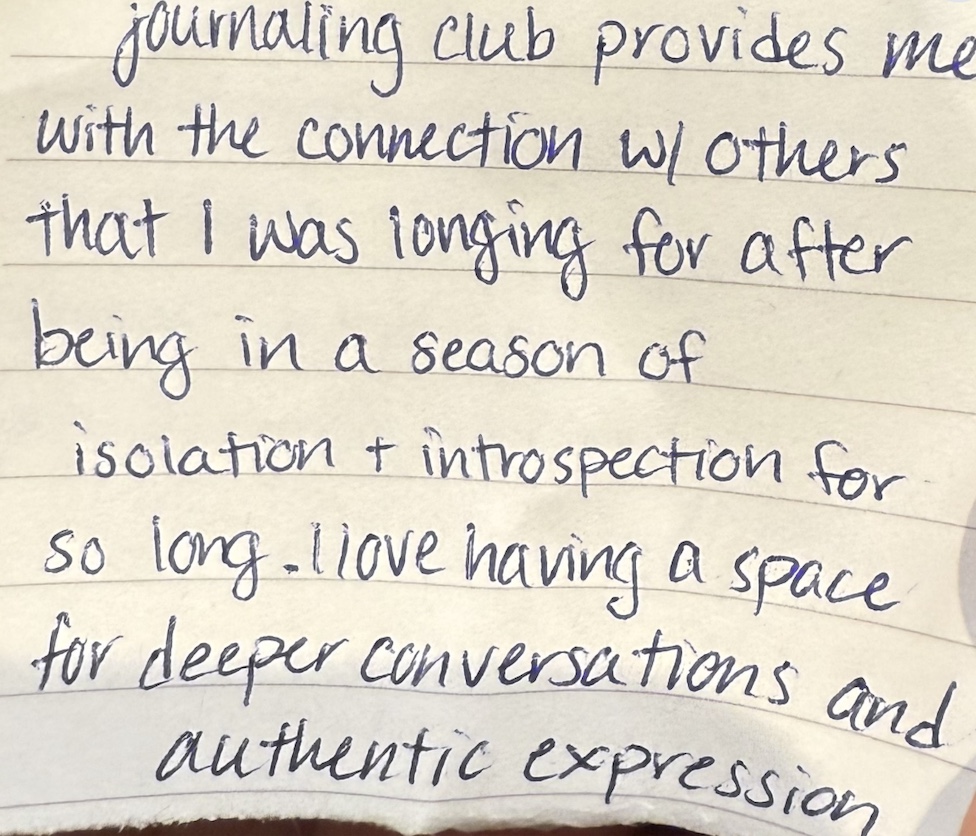 journaling club provides me
with the connection w/ others
that I was longing for after
being in a season of
isolation + introspection for
so long. I love having a space
for deeper conversations and
authentic expression